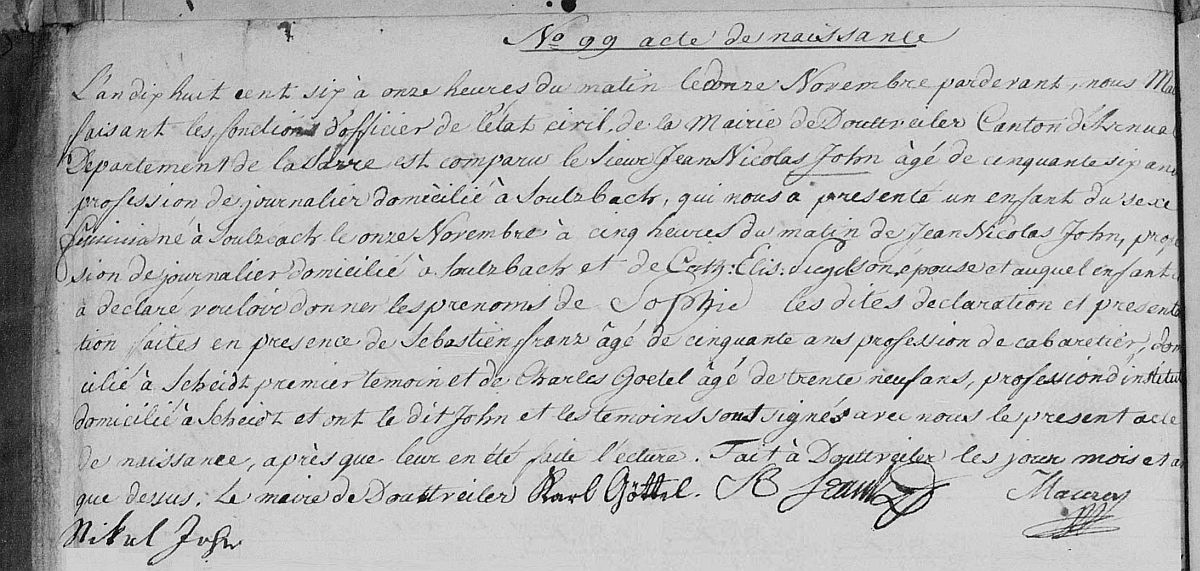 No 99 acte de naissance
L'an dix huit cent six à onze heures du matin le onze Novembre pardevant, nous Mai
faisant les fonctions d'officier de l'état civil, de la Mairie de Douttveiler Canton d'Arnual
Departement de la Sarre est comparu le Sieur Jean Nicolas John âgé de cinquante six ans
profession de journalier domicilié à Soulzbach, qui nous a presenté un enfant du sexe
né à Soulzbach le onze Novembre à cinq heures du matin de Jean Nicolas John, profes
sion de journalier domicilié à Soulzbach et de Cath: Elis: épouse et auquel enfant
a declaré vouloir donner les prenoms de Sophie les dites declaration et presenta
tion faites en presence de Sebastien franz âgé de cinquante ans profession de cabaretier, dom
icilié à Scheidt premier temoin et de Charles Goetel âgé de trente neuf ans, profession d'institut
domicilié à Scheidt et ont le dit John et les temoins sous signés avec nous le present acte
de naissance, après que leur en été faite l'ecture. Fait à Douttveiler les jour mois et an
que dessus. Le maire de Douttveiler Karl Göttel. SB franz
Nikel John